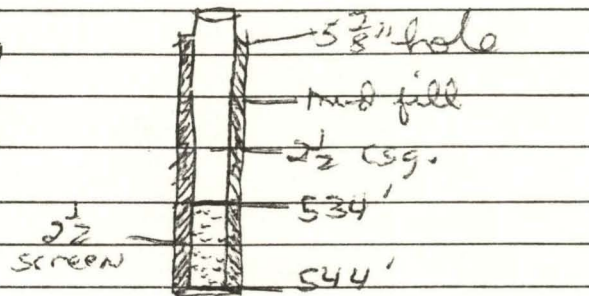 5 7/8" hole
mud fill
2 1/2 csg.
534'
2 1/2
screen
544'